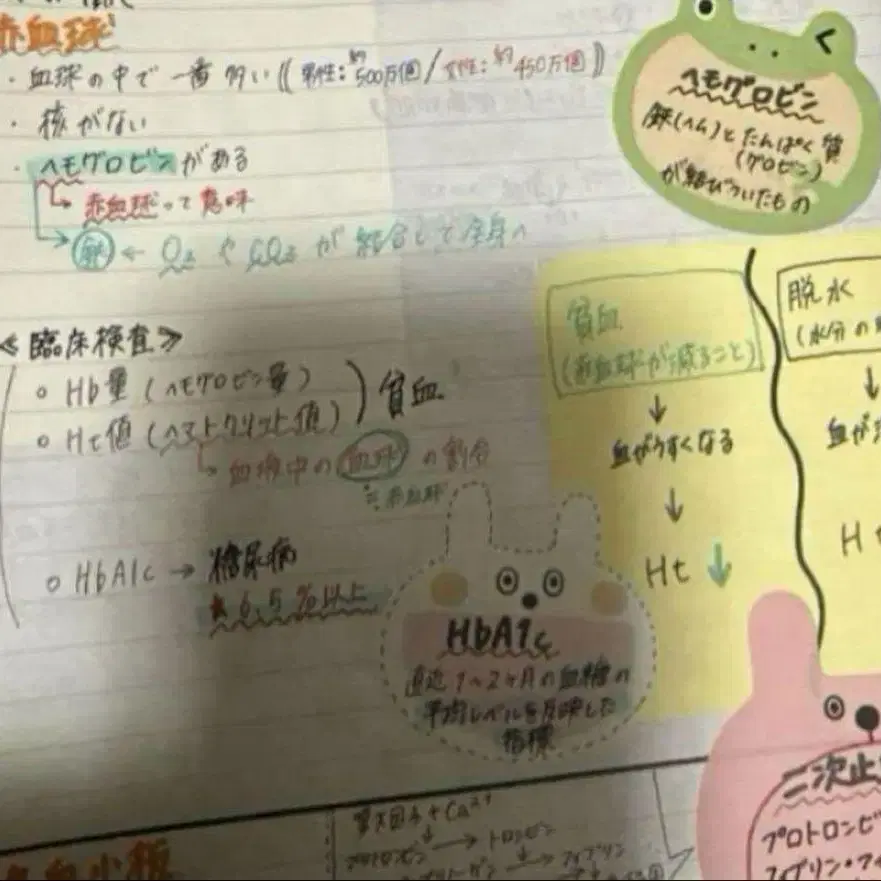 赤血球
・血球の中で一番多い((男性:約500万個/女性:約450万個))
・核がない
・ヘモグロビンがある
↳赤血球って意味
→鉄←O₂やCO₂が結合して全身へ
ヘモグロビン
鉄(ヘム)とたんぱく質
(グロビン)
が結びついたもの
≪臨床検査≫
○Hb量(ヘモグロビン量)
○Ht値(ヘマトクリット値)
)貧血
↳血液中の血球の割合
≒赤血球
○HbA1c→糖尿病
★6.5%以上
HbA1c
直近1〜2ヶ月の血糖の
平均レベルを反映した
指標
貧血
(赤血球が減ること)
↓
血がうすくなる
↓
Ht↓
脱水
(水分の
↓
血が
Ht
血小板
第Ⅹ因子+Ca²⁺
↓
プロトロンビン→トロンビン
↓
→フィブリン
二次止
プロトロンビ
フィブリン・フィ